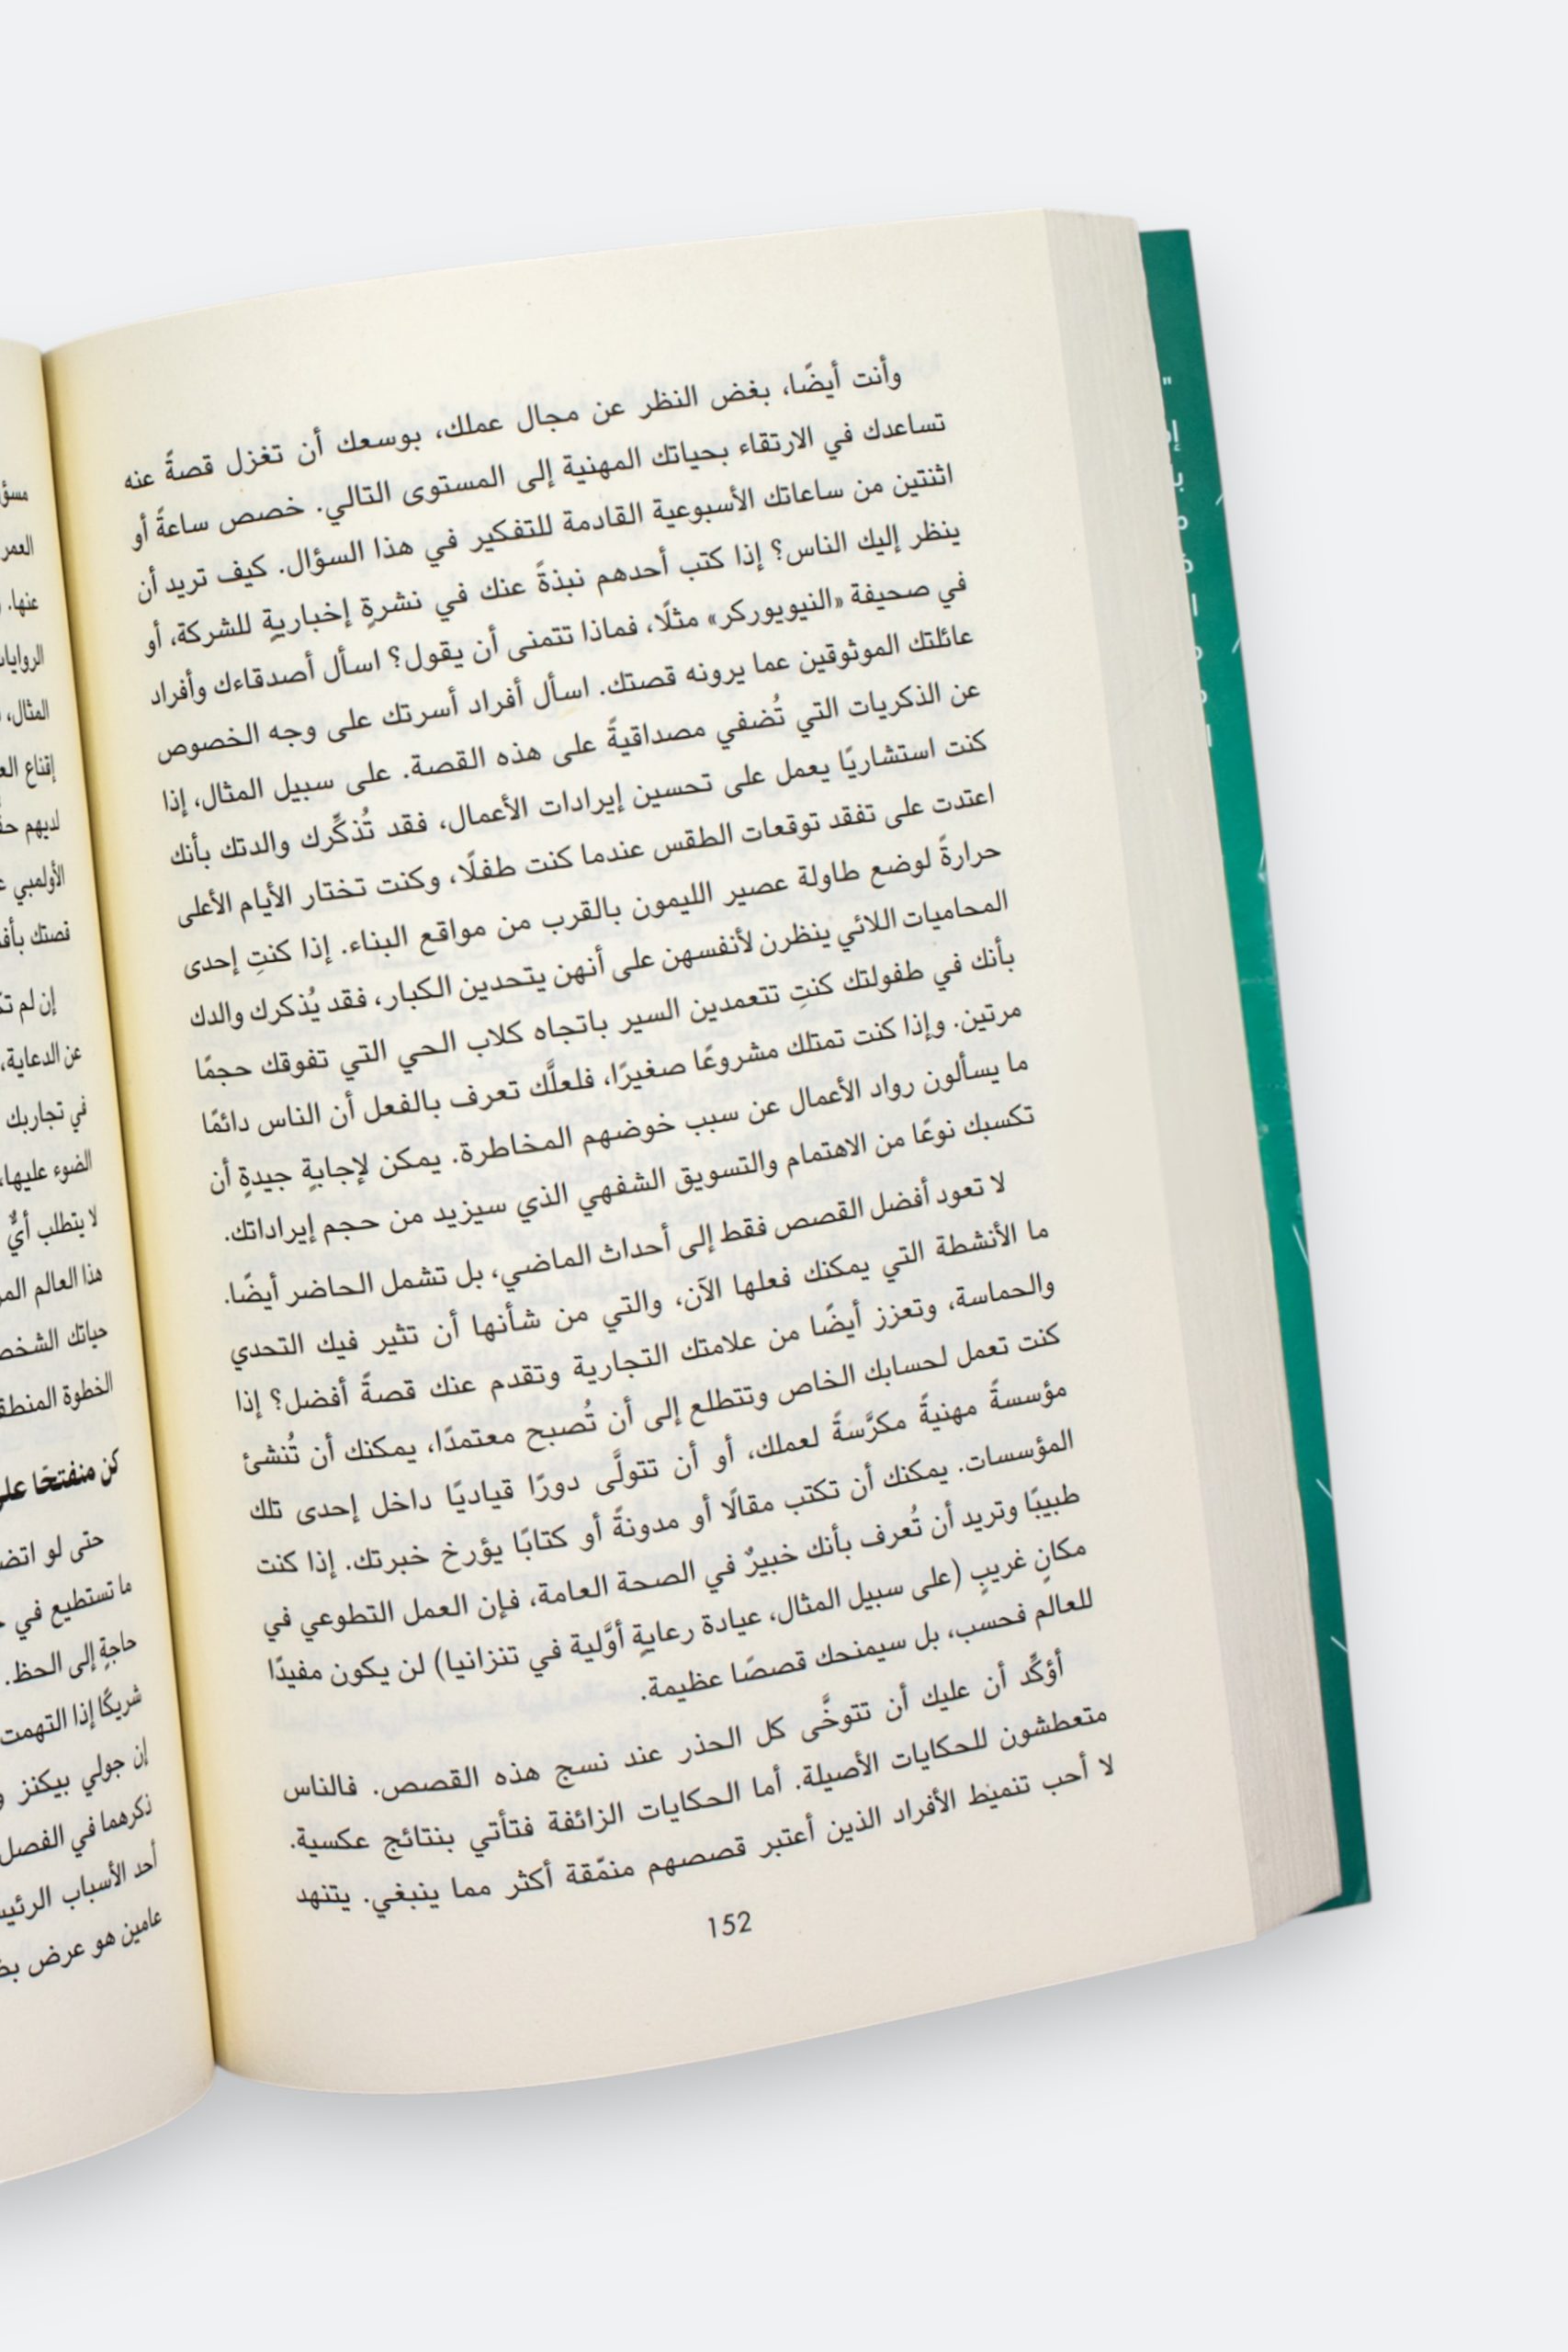 وأنت أيضًا، بغض النظر عن مجال عملك، بوسعك أن تغزل قصةً عنه
تساعدك في الارتقاء بحياتك المهنية إلى المستوى التالي. خصص ساعةً أو
اثنتين من ساعاتك الأسبوعية القادمة للتفكير في هذا السؤال. كيف تريد أن
ينظر إليك الناس؟ إذا كتب أحدهم نبذةً عنك في نشرةٍ إخباريةٍ للشركة، أو
في صحيفة «النيويوركر» مثلًا، فماذا تتمنى أن يقول؟ اسأل أصدقاءك وأفراد
عائلتك الموثوقين عما يرونه قصتك. اسأل أفراد أسرتك على وجه الخصوص
عن الذكريات التي تُضفي مصداقيةً على هذه القصة. على سبيل المثال، إذا
كنت استشاريًا يعمل على تحسين إيرادات الأعمال، فقد تُذكِّرك والدتك بأنك
اعتدت على تفقد توقعات الطقس عندما كنت طفلًا، وكنت تختار الأيام الأعلى
حرارةً لوضع طاولة عصير الليمون بالقرب من مواقع البناء. إذا كنتِ إحدى
المحاميات اللائي ينظرن لأنفسهن على أنهن يتحدين الكبار، فقد يُذكرك والدك
بأنك في طفولتك كنتِ تتعمدين السير باتجاه كلاب الحي التي تفوقك حجمًا
مرتين. وإذا كنت تمتلك مشروعًا صغيرًا، فلعلَّك تعرف بالفعل أن الناس دائمًا
ما يسألون رواد الأعمال عن سبب خوضهم المخاطرة. يمكن لإجابةٍ جيدةٍ أن
تكسبك نوعًا من الاهتمام والتسويق الشفهي الذي سيزيد من حجم إيراداتك.
لا تعود أفضل القصص فقط إلى أحداث الماضي، بل تشمل الحاضر أيضًا.
ما الأنشطة التي يمكنك فعلها الآن، والتي من شأنها أن تثير فيك التحدي
والحماسة، وتعزز أيضًا من علامتك التجارية وتقدم عنك قصةً أفضل؟ إذا
كنت تعمل لحسابك الخاص وتتطلع إلى أن تُصبح معتمدًا، يمكنك أن تُنشئ
مؤسسةً مهنيةً مكرَّسَةً لعملك، أو أن تتولَّى دورًا قياديًا داخل إحدى تلك
المؤسسات. يمكنك أن تكتب مقالًا أو مدونةً أو كتابًا يؤرخ خبرتك. إذا كنت
طبيبًا وتريد أن تُعرف بأنك خبيرٌ في الصحة العامة، فإن العمل التطوعي في
مكانٍ غريبٍ (على سبيل المثال، عيادة رعايةٍ أوَّلية في تنزانيا) لن يكون مفيدًا
للعالم فحسب، بل سيمنحك قصصًا عظيمة.
أؤكِّد أن عليك أن تتوخَّى كل الحذر عند نسج هذه القصص. فالناس
متعطشون للحكايات الأصيلة. أما الحكايات الزائفة فتأتي بنتائج عكسية.
لا أحب تنميط الأفراد الذين أعتبر قصصهم منمّقة أكثر مما ينبغي. يتنهد
152
العمر
عنها.
المثال،
إقناع
لديهم
الأولمبي
قصتك
إن لم
عن الدعاية،
في تجاربك
الضوء عليها،
لا يتطلب أيٌّ
هذا العالم
حياتك
الخطوة
كن منفتحًا
حتى لو
ما تستطيع في
حاجةٍ إلى الحظ.
شريكًا إذا التهمت
إن جولي بيكنز
ذكرهما في الفصل
أحد الأسباب
عامين هو عرض